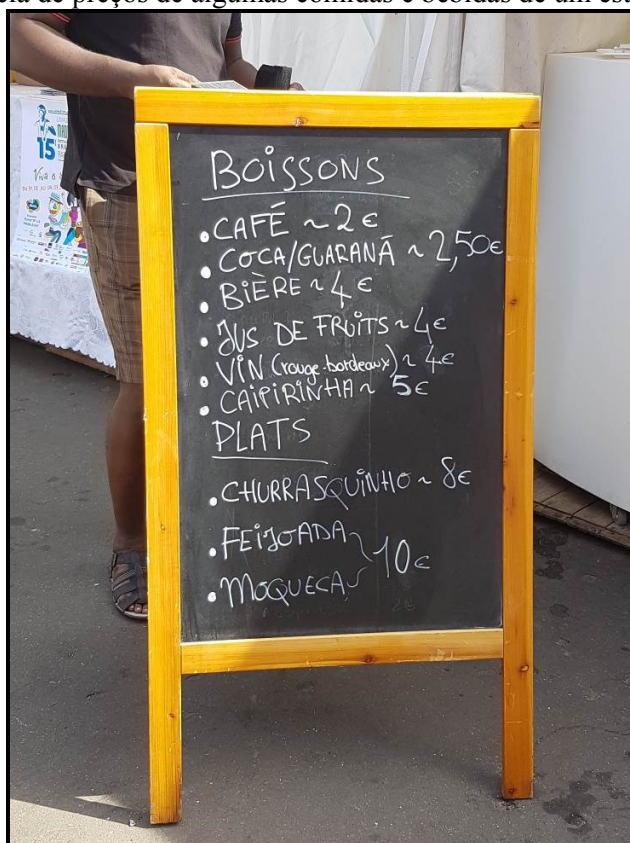 de preços de algumas comidas e bebidas de um
BOISSONS
. CAFÉ ~ 2 €
. COCA/GUARANÁ ~ 2,50€
. BIÈRE ~ 4 €
. JUS DE FRUITS ~ 4€
. VIN (rouge-bordeaux) ~ 4€
. CAIPIRINHA ~ 5€
PLATS
. CHURRASQUINHO ~ 8€
. FEIJOADA
10€
. MOQUECA
15